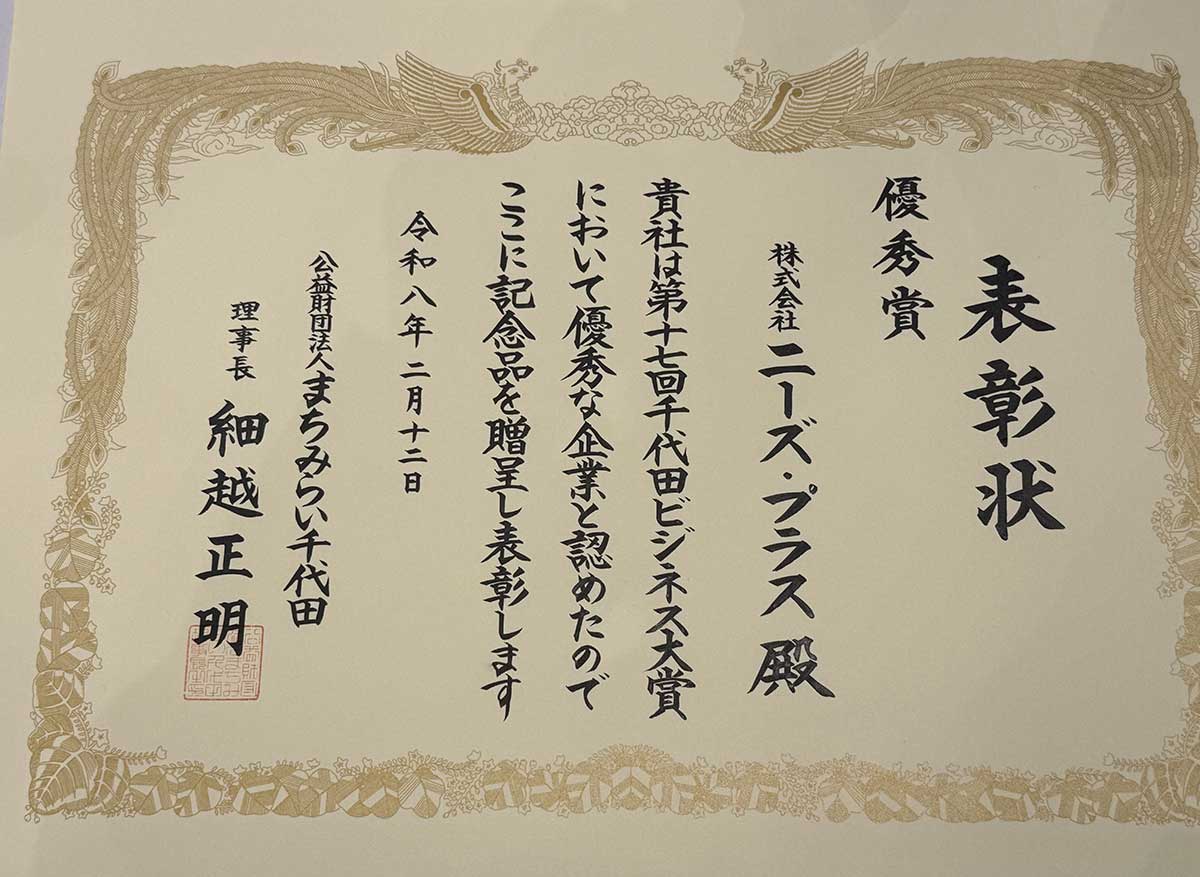 表彰状
優秀賞
株式会社 ニーズ・プラス 殿
貴社は第十七回千代田ビジネス大賞
において優秀な企業と認めたので
ここに記念品を贈呈し表彰します
令和八年二月十二日
公益財団法人まちみらい千代田
理事長 細越正明